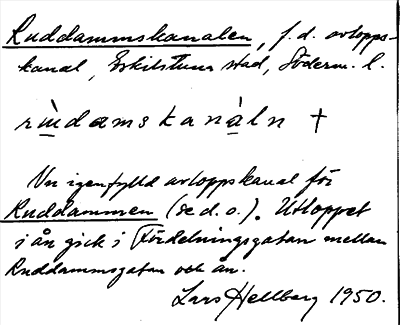 Ruddammskanalen, f.d. avlopps-
kanal, Eskilstuna stad, Söderm. l.
rùdamskanàln †
Nu igenfylld avloppskanal för
Ruddammen (se d. o.). Utloppet
i ån gick i Fördelningsgatan mellan
Ruddammsgatan och ån.
Lars Hellberg 1950.